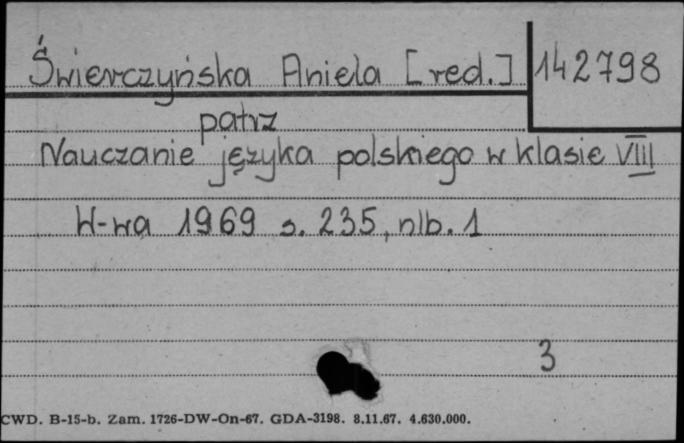 Świerczyńska Aniela [red.] 142798
patrz
Nauczanie języka polskiego w klasie VIII
W-wa 1969 s. 235, nlb. 1
3
CWD. B-15-b. Zam. 1726-DW-On-67. GDA-3198. 8.11.67. 4.630.000.